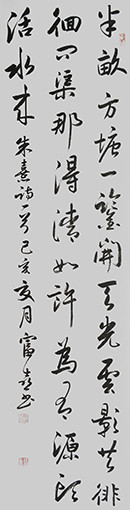 半畝方塘一鑑開天光雲影共徘
徊問渠那得清如許為有源頭
活水來朱熹詩一首己亥夏月富春書